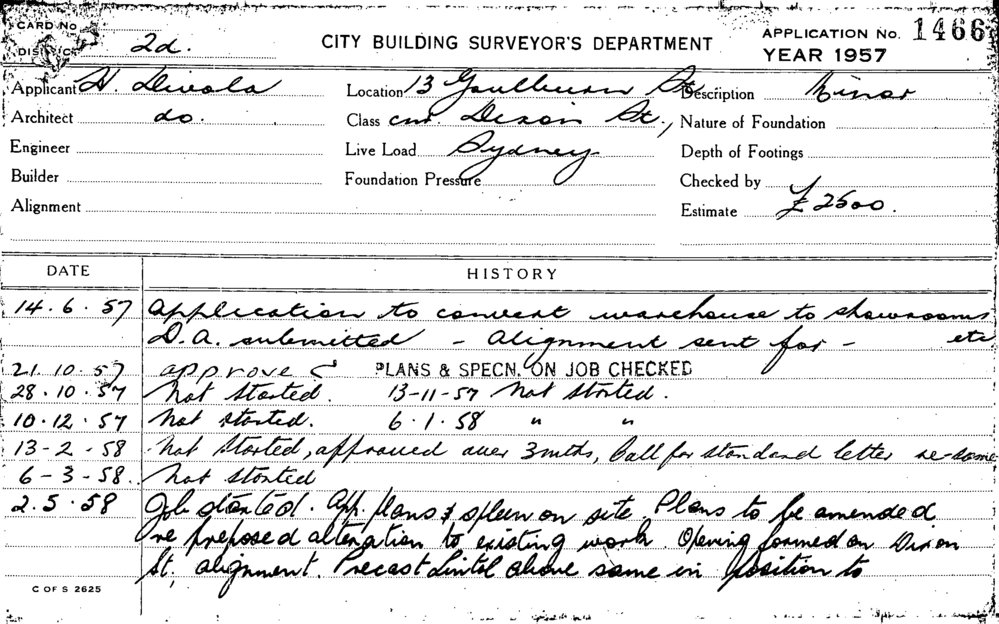 CARD No
DISTRICT 2d.
CITY BUILDING SURVEYOR'S DEPARTMENT
APPLICATION No. 1466
YEAR 1957
Applicant H. Divola Location 13 Goulburn St Description Minor
Architect do. Class cnr. Dixon St., Nature of Foundation
Engineer Live Load Sydney Depth of Footings
Builder Foundation Pressure Checked by
Alignment Estimate £2500.
DATE HISTORY
14.6.57 Application to convert warehouse to showrooms
D.A. submitted - Alignment sent for - etc
21.10.57 approved PLANS & SPECN. ON JOB CHECKED
28.10.57 Not started. 13-11-57 Not started.
10.12.57 Not started. 6.1.58 " "
13-2-58 Not started, approved over 3 mths, Call for standard letter re same
6-3-58. Not started
2.5.58 Job started. App. plans & specn on site. Plans to be amended
re proposed alteration to existing work. Opening formed on Dixon
St, alignment. Precast Lintol above same in position to
C OF S 2625